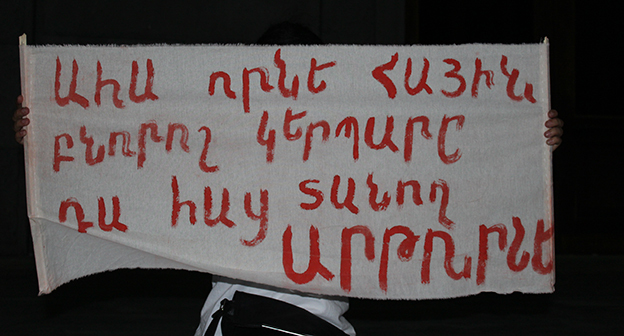 ԱՀԱ ՈՐՆԷ ՀԱՅԻՆ
ԲՆՈՐՈՇ ԿԵՐՊԱՐԸ
ԴԱ ՀԱՑ ՏԱՆՈՂ
ԱՐԹՈՒՐՆԷ